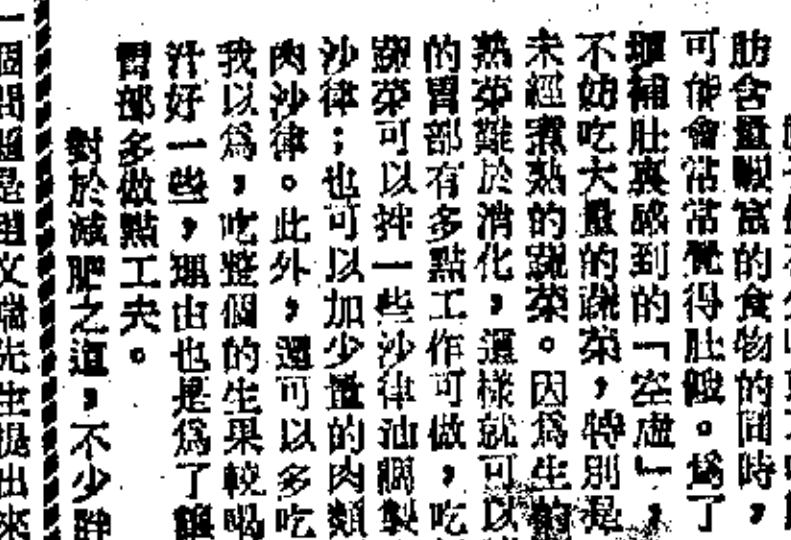 肪含量較高的食物的同時，
可能會常常覺得肚餓。為了
填補肚裏感到的「空虛」，
不妨吃大量的蔬菜，特別是
未經煮熟的蔬菜。因為生的
熟菜難於消化，這樣就可以
的胃部有多點工作可做，吃
蔬菜可以拌一些沙律油調製
沙律；也可以加少量的肉類
肉沙律。此外，還可以多吃
我以為，吃整個的生果較喝
汁好一些，理由也是為了讓
胃部多做點工夫。
對於減肥之道，不少胖
一個問題是趙文端先生提出來